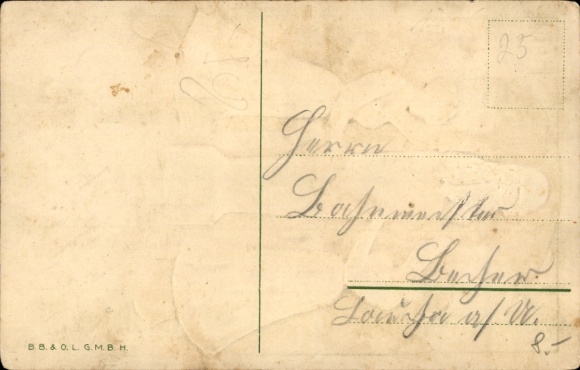 25
Herrn
Bahnmeister
Becher
Laucha a/U.
8.-
B. B. & O. L. G. M. B. H.